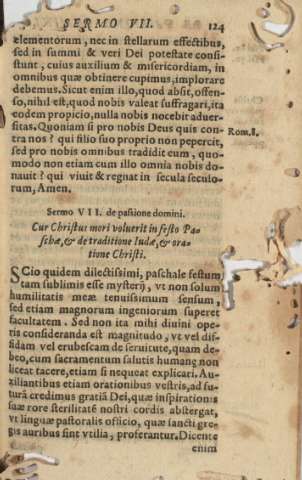 SERMO VII. 124
elementorum, nec in stellarum effectibus,
sed in summi & veri Dei potestate consi-
stunt, cuius auxilium & misericordiam, in
omnibus quæ obtinere cupimus, implorare
debemus. Sicut enim illo, quod absit, offen-
so, nihil est, quod nobis valeat suffragari, ita
eodem propicio, nulla nobis nocebit aduer-
sitas. Quoniam si pro nobis Deus quis con-
tra nos? qui filio suo proprio non pepercit, Rom. 8.
sed pro nobis omnibus tradidit eum, quo-
modo non etiam cum illo omnia nobis do-
nauit? qui viuit & regnat in secula seculo-
rum, Amen.
Sermo VII. de passione domini.
Cur Christus mori voluerit in festo Pa-
schæ, & de traditione Iudæ, & ora-
tione Christi.
SCio quidem dilectissimi, paschale festum
tam sublimis esse mysterij, vt non solum
humilitatis meæ tenuissimum sensum,
sed etiam magnorum ingeniorum superet
facultatem. Sed non ita mihi diuini ope-
ris consideranda est magnitudo, vt vel dif-
fidam vel erubescam de seruitute, quam de-
beo, cum sacramentum salutis humanę non
liceat tacere, etiam si nequeat explicari. Au-
xiliantibus etiam orationibus vestris, ad fu-
turā credimus gratiā Dei, quæ inspirationis
suæ rore sterilitatē nostri cordis abstergat,
vt linguæ pastoralis officio, quæ sancti gre-
gis auribus sint vtilia, proferantur. Dicente
enim